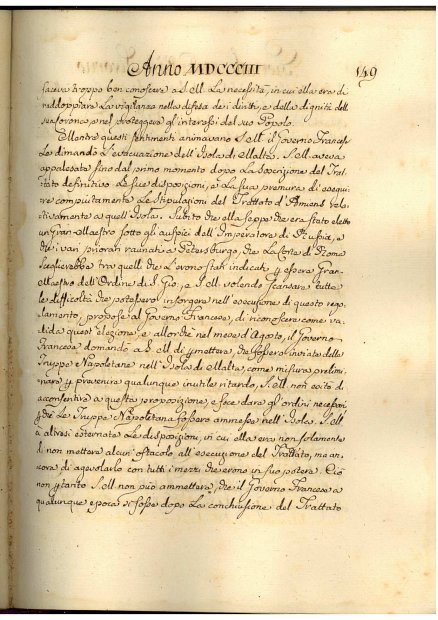 Anno MDCCCIII 149
faceva troppo ben conoscere a S. M. La necessità, in cui ella era di
raddoppiare La vigilanza nella difesa dei diritti, e della dignità dell
sua corona, e nel proteggere gl' interessi del suo Popolo.
Mentre questi sentimenti animavano S. M. il Governo Frances
Le dimandò L'evacuazione dell' Isola di Malta. S. M. aveva
appalesate fino dal primo momento dopo La Soscrizione del Trat-
tato definitivo Le sue disposizioni, e La sua premura di esegui
re compiutamente Le Stipulazioni del Trattato d'Amiens rela-
tivamente a quell' Isola. Subito che ella seppe che era stato eletto
un Gran Maestro sotto gli auspici dell' Imperatore di Russia, e
che i vari priorati raunati a Petersburgo, che La Corte di Roma
sceglierebbe tra quelli che v'erono stati indicati per essere Gran
Maestro dell' Ordine di S. Gio., e S. M. volendo scansare tutte
le difficoltà che potessero insorgere nell' esecuzione di questo rego
lamento, propose al Governo Francese, di riconoscere come va-
lida quest' elezione, e allorchè nel mese d'Agosto, il Governo
Francese domandò a S. M. di permettere, che fossero inviate delle
Truppe Napoletane nell' Isola di Malta, come misura prelimi-
nare per prevenire qualunque inutile ritardo, S. M. non esitò di
acconsentire a questa proposizione, e fece dare gli ordini necessari
perchè Le Truppe Napoletane fossero ammesse nell' Isola. S. M.
à altresì esternate Le disposizioni, in cui ella era non solamente
di non mettere alcun' ostacolo all' esecuzione del Trattato, ma an-
cora di agevolarlo con tutti i mezzi che erono in suo potere. Ciò
non pertanto S. M. non può ammettere, che il Governo Francese a
qualunque epoca si fosse dopo La conchiusione del Trattato